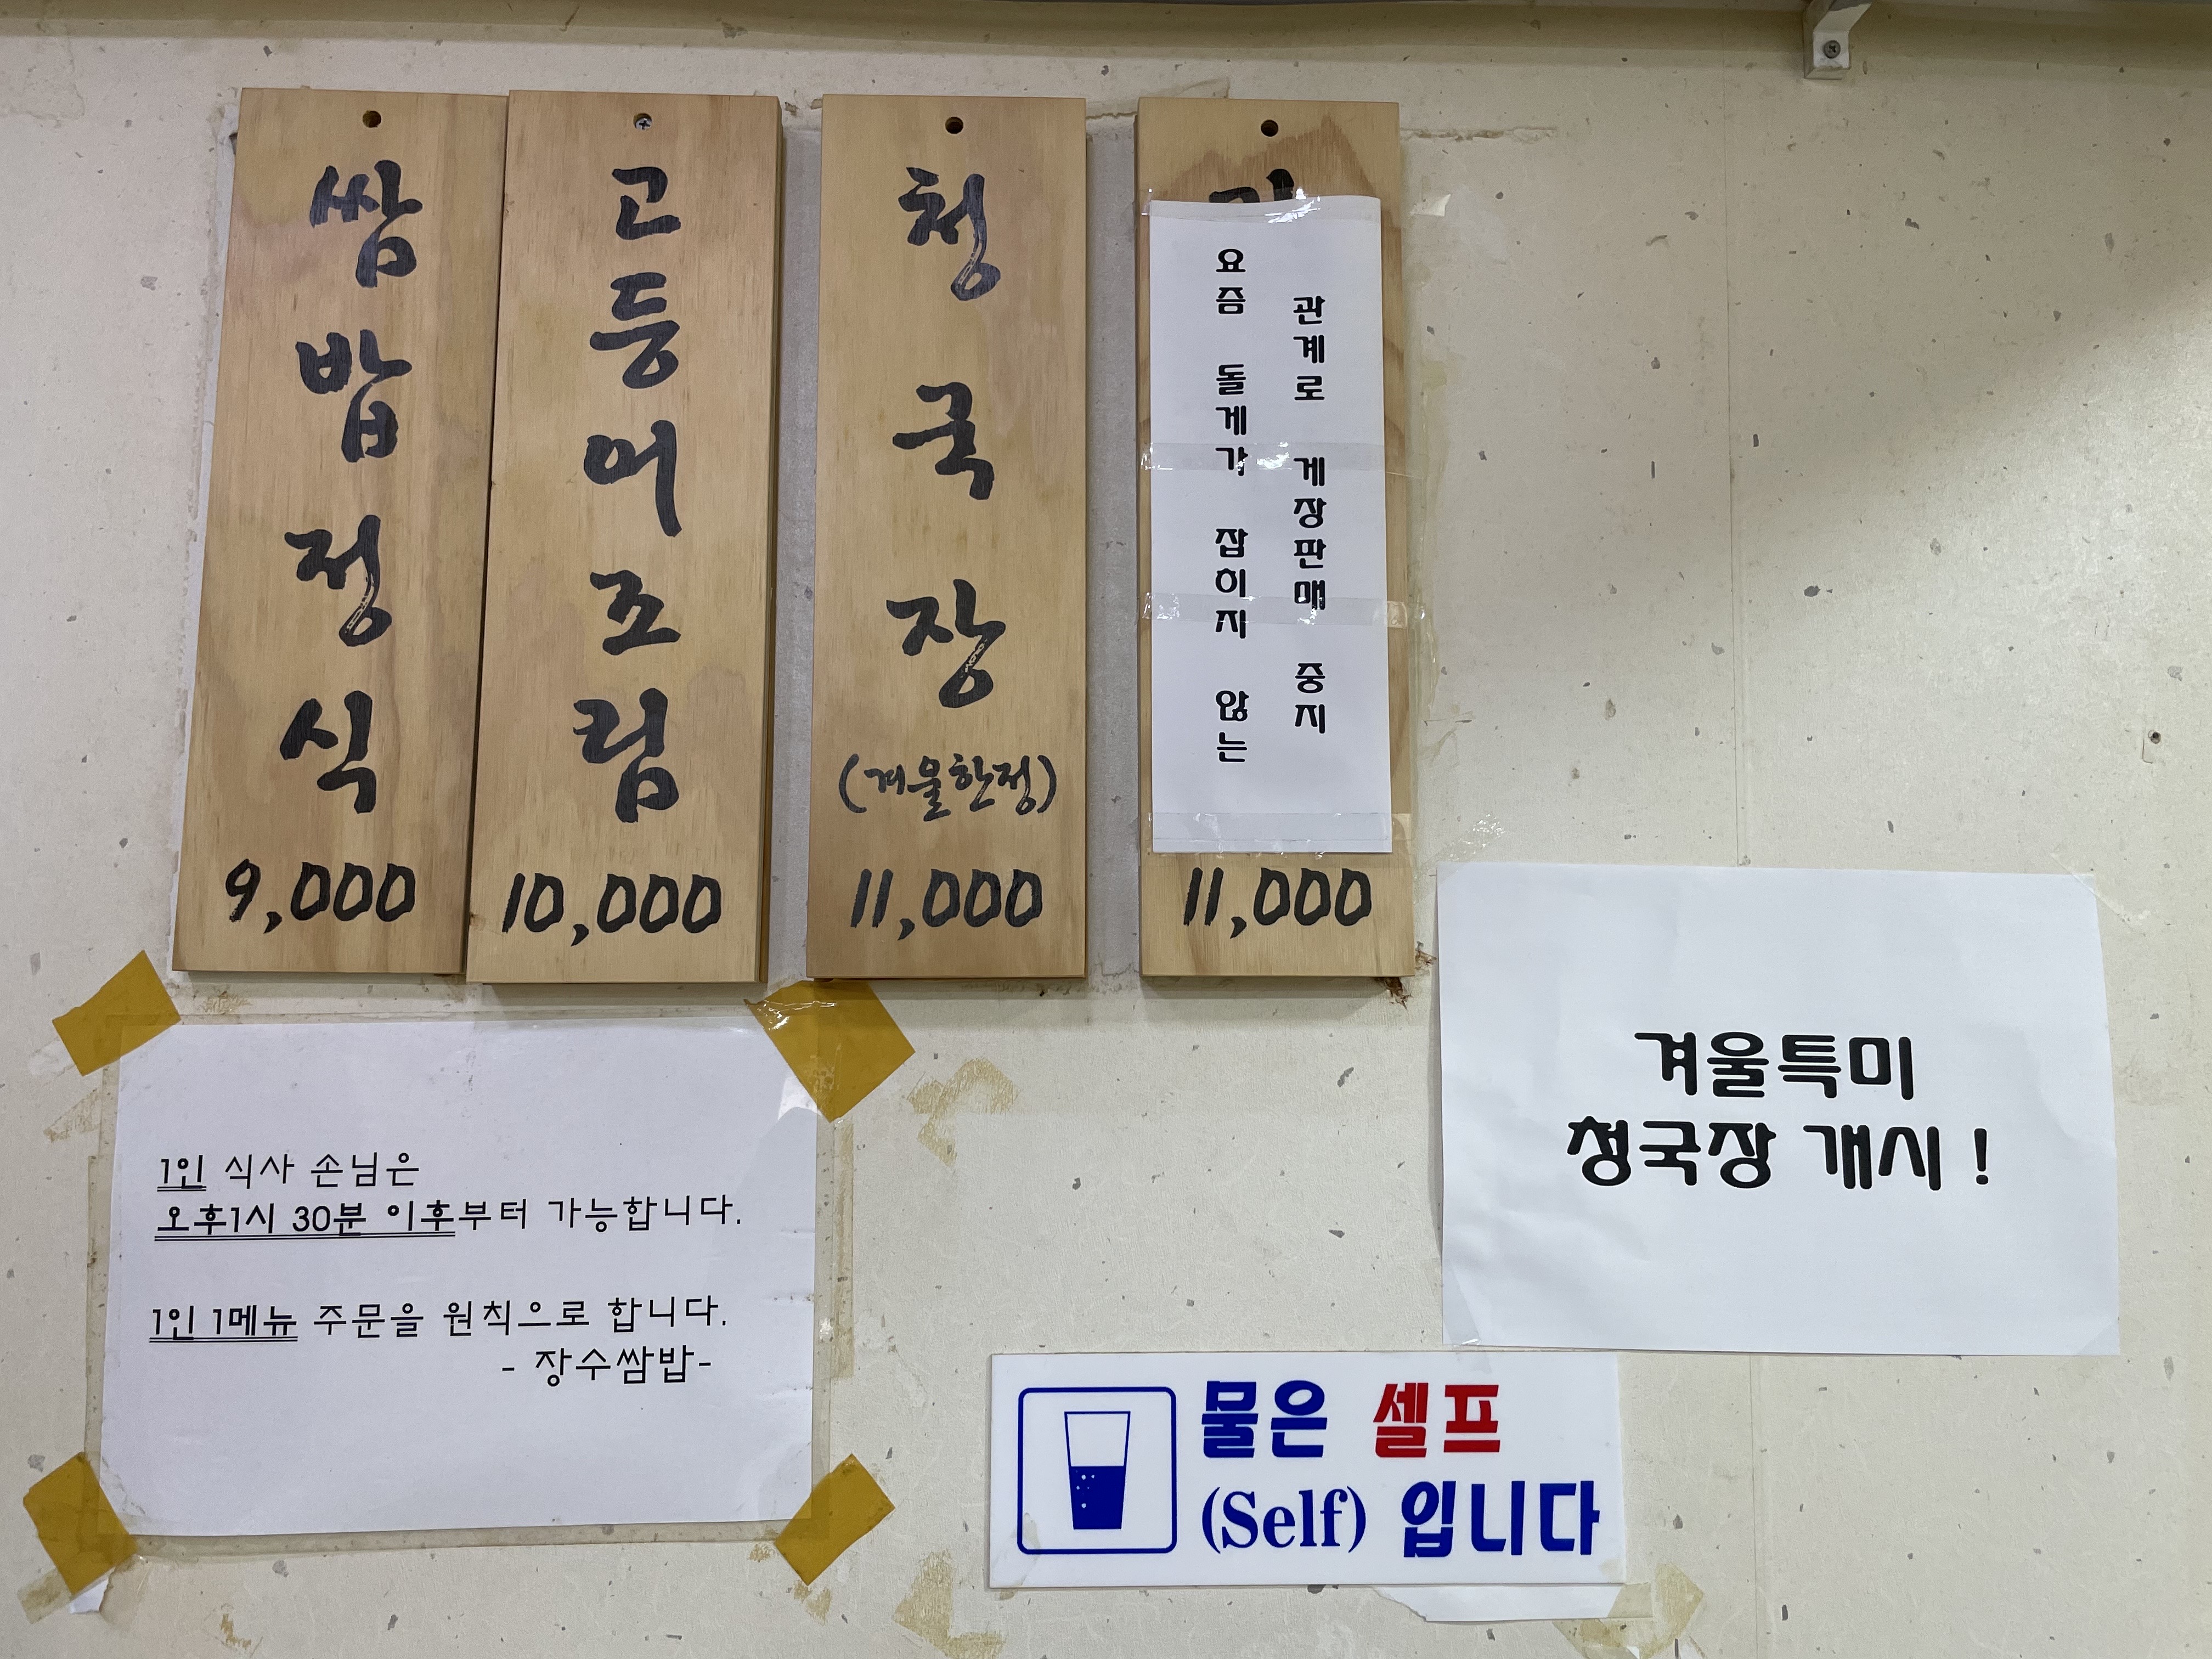 쌈밥정식
9,000
고등어조림
10,000
청국장
(겨울한정)
11,000
요즘 돌게가 잡히지 않는
관계로 게장판매 중지
11,000
1인 식사 손님은
오후1시 30분 이후부터 가능합니다.
1인 1메뉴 주문을 원칙으로 합니다.
- 장수쌈밥-
겨울특미
청국장 개시 !
물은 셀프
(Self) 입니다